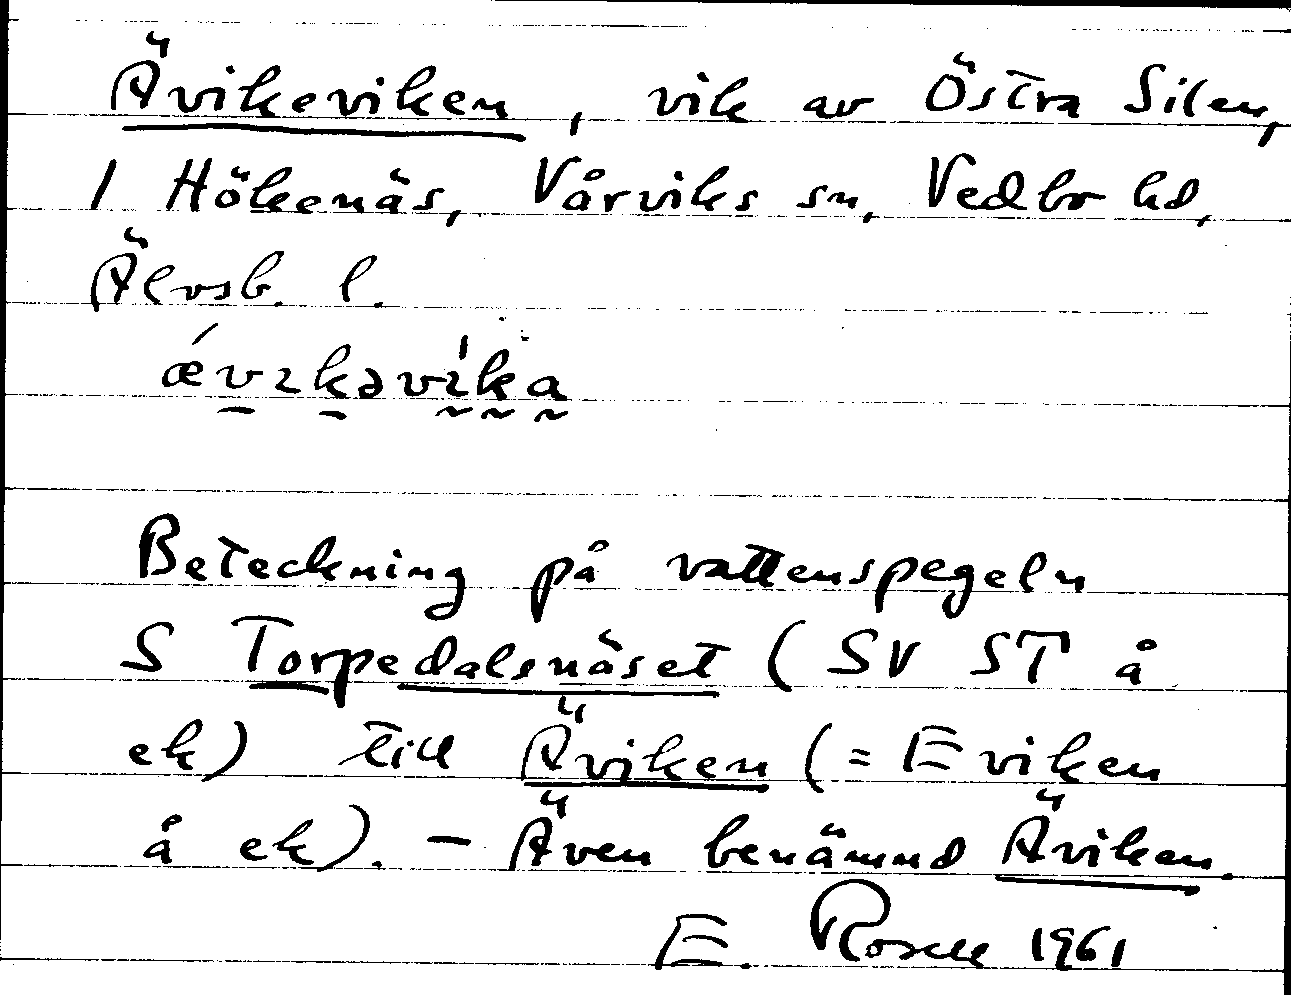 Ävikeviken, vik av Östra Silen,
1 Hökenäs, Vårviks sn, Vedbo hd,
Älvsb. l.
ǽvɪkəvìka
Beteckning på vattenspegeln
S Torpedalsnäset (SV ST å
ek) till Äviken (= Eviken
å ek). – Även benämnd Äviken.
E. Rosell 1961